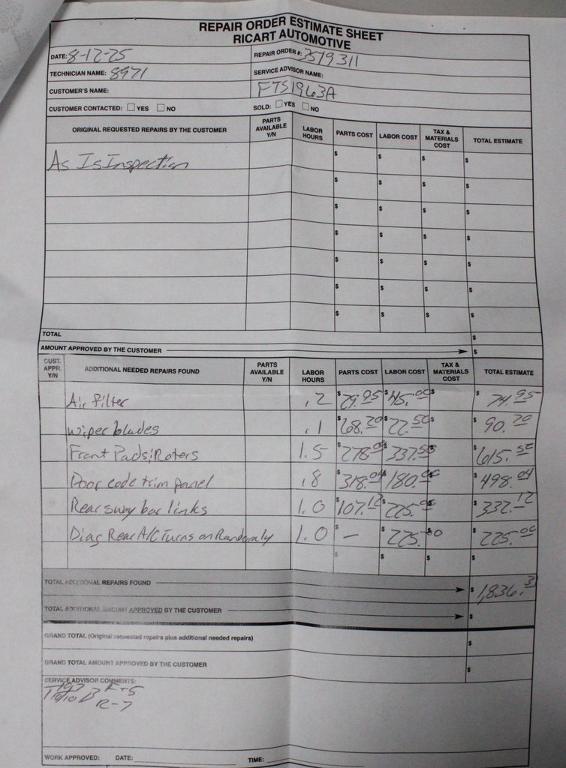 REPAIR ORDER ESTIMATE SHEET
RICART AUTOMOTIVE
DATE: 8-12-25 REPAIR ORDER #: 3579311
TECHNICIAN NAME: 8971 SERVICE ADVISOR NAME:
CUSTOMER'S NAME: FTS1963A
CUSTOMER CONTACTED: YES NO SOLD: YES NO
ORIGINAL REQUESTED REPAIRS BY THE CUSTOMER PARTS AVAILABLE Y/N LABOR HOURS PARTS COST LABOR COST TAX & MATERIALS COST TOTAL ESTIMATE
As Is Inspection $ $ $ $
$ $ $ $
$ $ $ $
$ $ $ $
$ $ $ $
$ $ $ $
$ $ $ $
TOTAL $
AMOUNT APPROVED BY THE CUSTOMER $
CUST. APPR. Y/N ADDITIONAL NEEDED REPAIRS FOUND PARTS AVAILABLE Y/N LABOR HOURS PARTS COST LABOR COST TAX & MATERIALS COST TOTAL ESTIMATE
Air filter .2 $29.95 $45.00 $ $74.95
wiper blades .1 $68.20 $22.50 $ $90.70
Front Pads/Roters 1.5 $278.04 $337.50 $ $615.54
Door code trim panel .8 $318.04 $180.00 $ $498.04
Rear sway bar links 1.0 $107.12 $225.00 $ $332.12
Diag Rear A/C Turns on Randomly 1.0 $ — $225.00 $ $225.00
$ $ $ $
TOTAL ADDITIONAL REPAIRS FOUND $1,836.
TOTAL ADDITIONAL AMOUNT APPROVED BY THE CUSTOMER $
GRAND TOTAL (Original requested repairs plus additional needed repairs) $
GRAND TOTAL AMOUNT APPROVED BY THE CUSTOMER $
SERVICE ADVISOR COMMENTS:
F-5
R-7
WORK APPROVED: DATE: TIME: